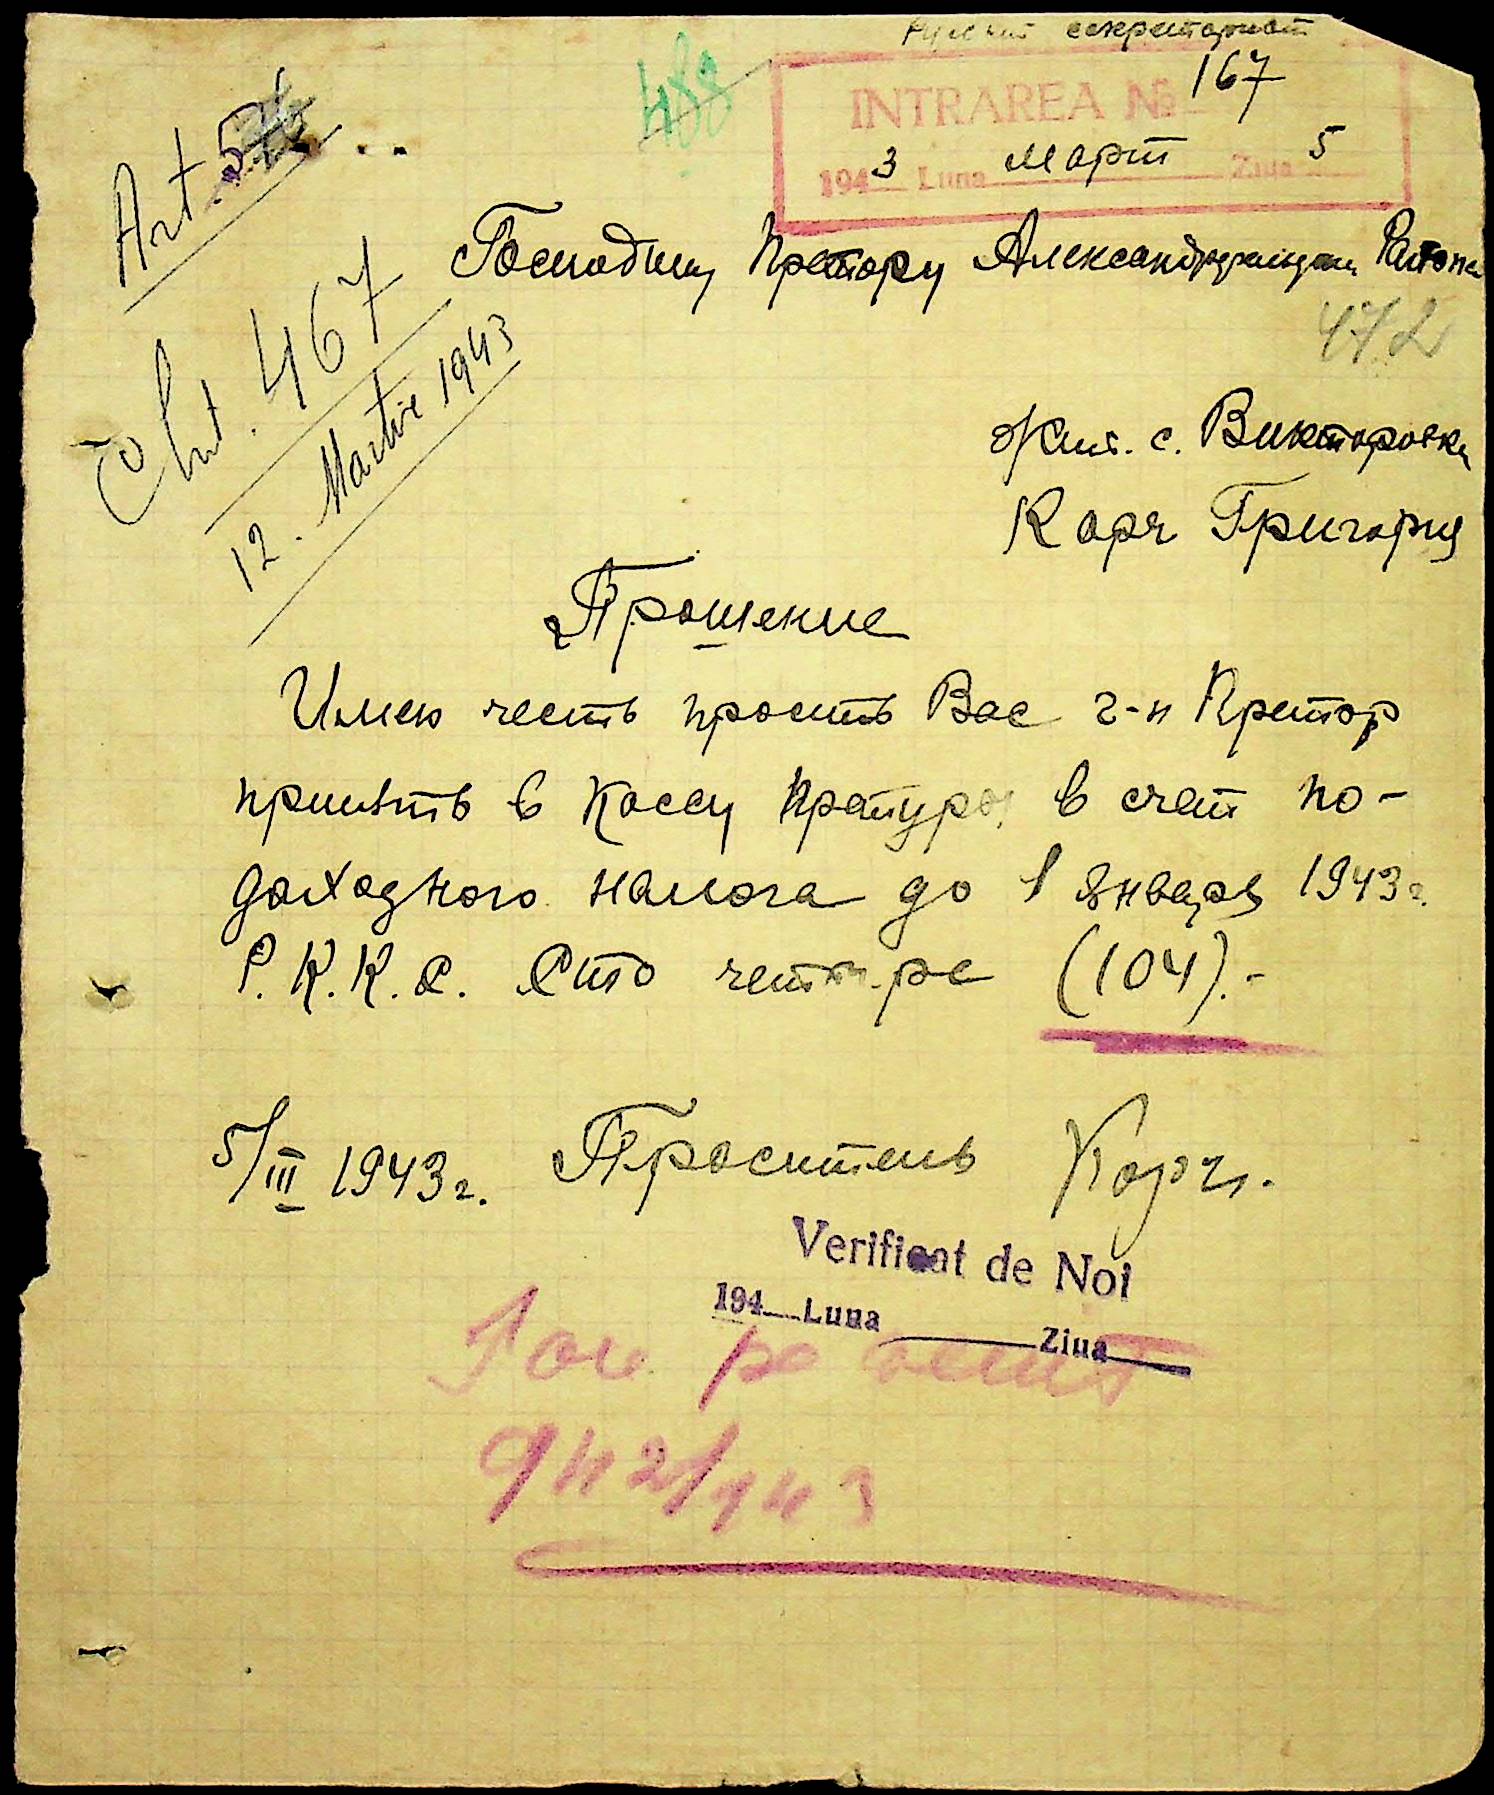 Русский секретариат
488
INTRAREA № 167
1943 Luna март Ziua 5
Art.
Господину Претору Александрфельдском Району
472
Chit. 467
12. Martie 1943
Жит. с. Викторовки
Карч Григория
Прошение
Имею честь просить Вас г-н Претор
принять в Кассу Претуры в счет по-
доходного налога до 1 января 1943 г.
Р. К. К. С. Сто четыре (104).-
5/III 1943 г. Проситель Карч.
Verificat de Noi
194 Luna Ziua
942/943